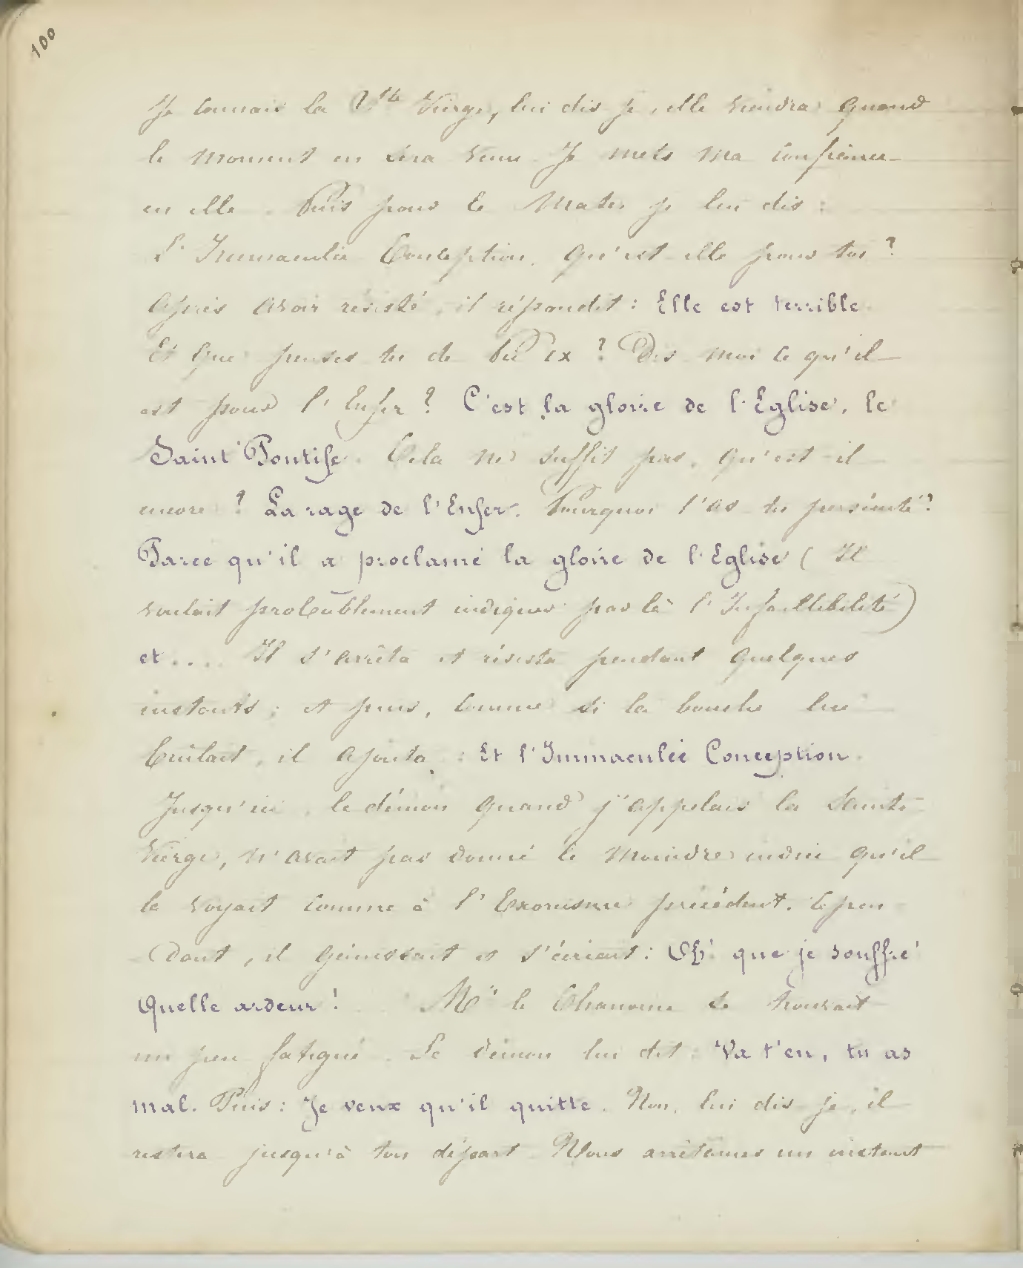 100
Je connais la Ste Vierge, lui dis je, elle viendra quand
le moment en sera venu. Je mets ma confiance
en elle. Puis pour le mater je lui dis :
L'Immaculée Conception, qu'est-elle pour toi ?
Après avoir résisté, il répondit : Elle est terrible.
Et que penses tu de Pie IX ? Dis moi ce qu'il
est pour l'Enfer ? C'est la gloire de l'Eglise, le
Saint Pontife. Cela ne suffit pas, qu'est-il
encore ? La rage de l'Enfer. Pourquoi l'as tu persécuté ?
Parce qu'il a proclamé la gloire de l'Eglise ( Il
voulait probablement indiquer par là l'Infaillibilité )
et .... Il s'arrêta et résista pendant quelques
instants ; et puis, comme si la bouche lui
brûlait, il ajouta : Et l'Immaculée Conception.
Jusqu'ici, le démon quand j'appelais la Sainte
Vierge, n'avait pas donné le moindre indice qu'il
la voyait comme à l'Exorcisme précédent. Cepen
dant, il gémissait et s'écriait : Oh! que je souffre
quelle ardeur ! Mr le Chanoine se trouvait
un peu fatigué. Le démon lui dit : Va t'en, tu as
mal. Puis : Je veux qu'il quitte. Non, lui dis je, il
restera jusqu'à ton départ. Nous arrêtâmes un instant